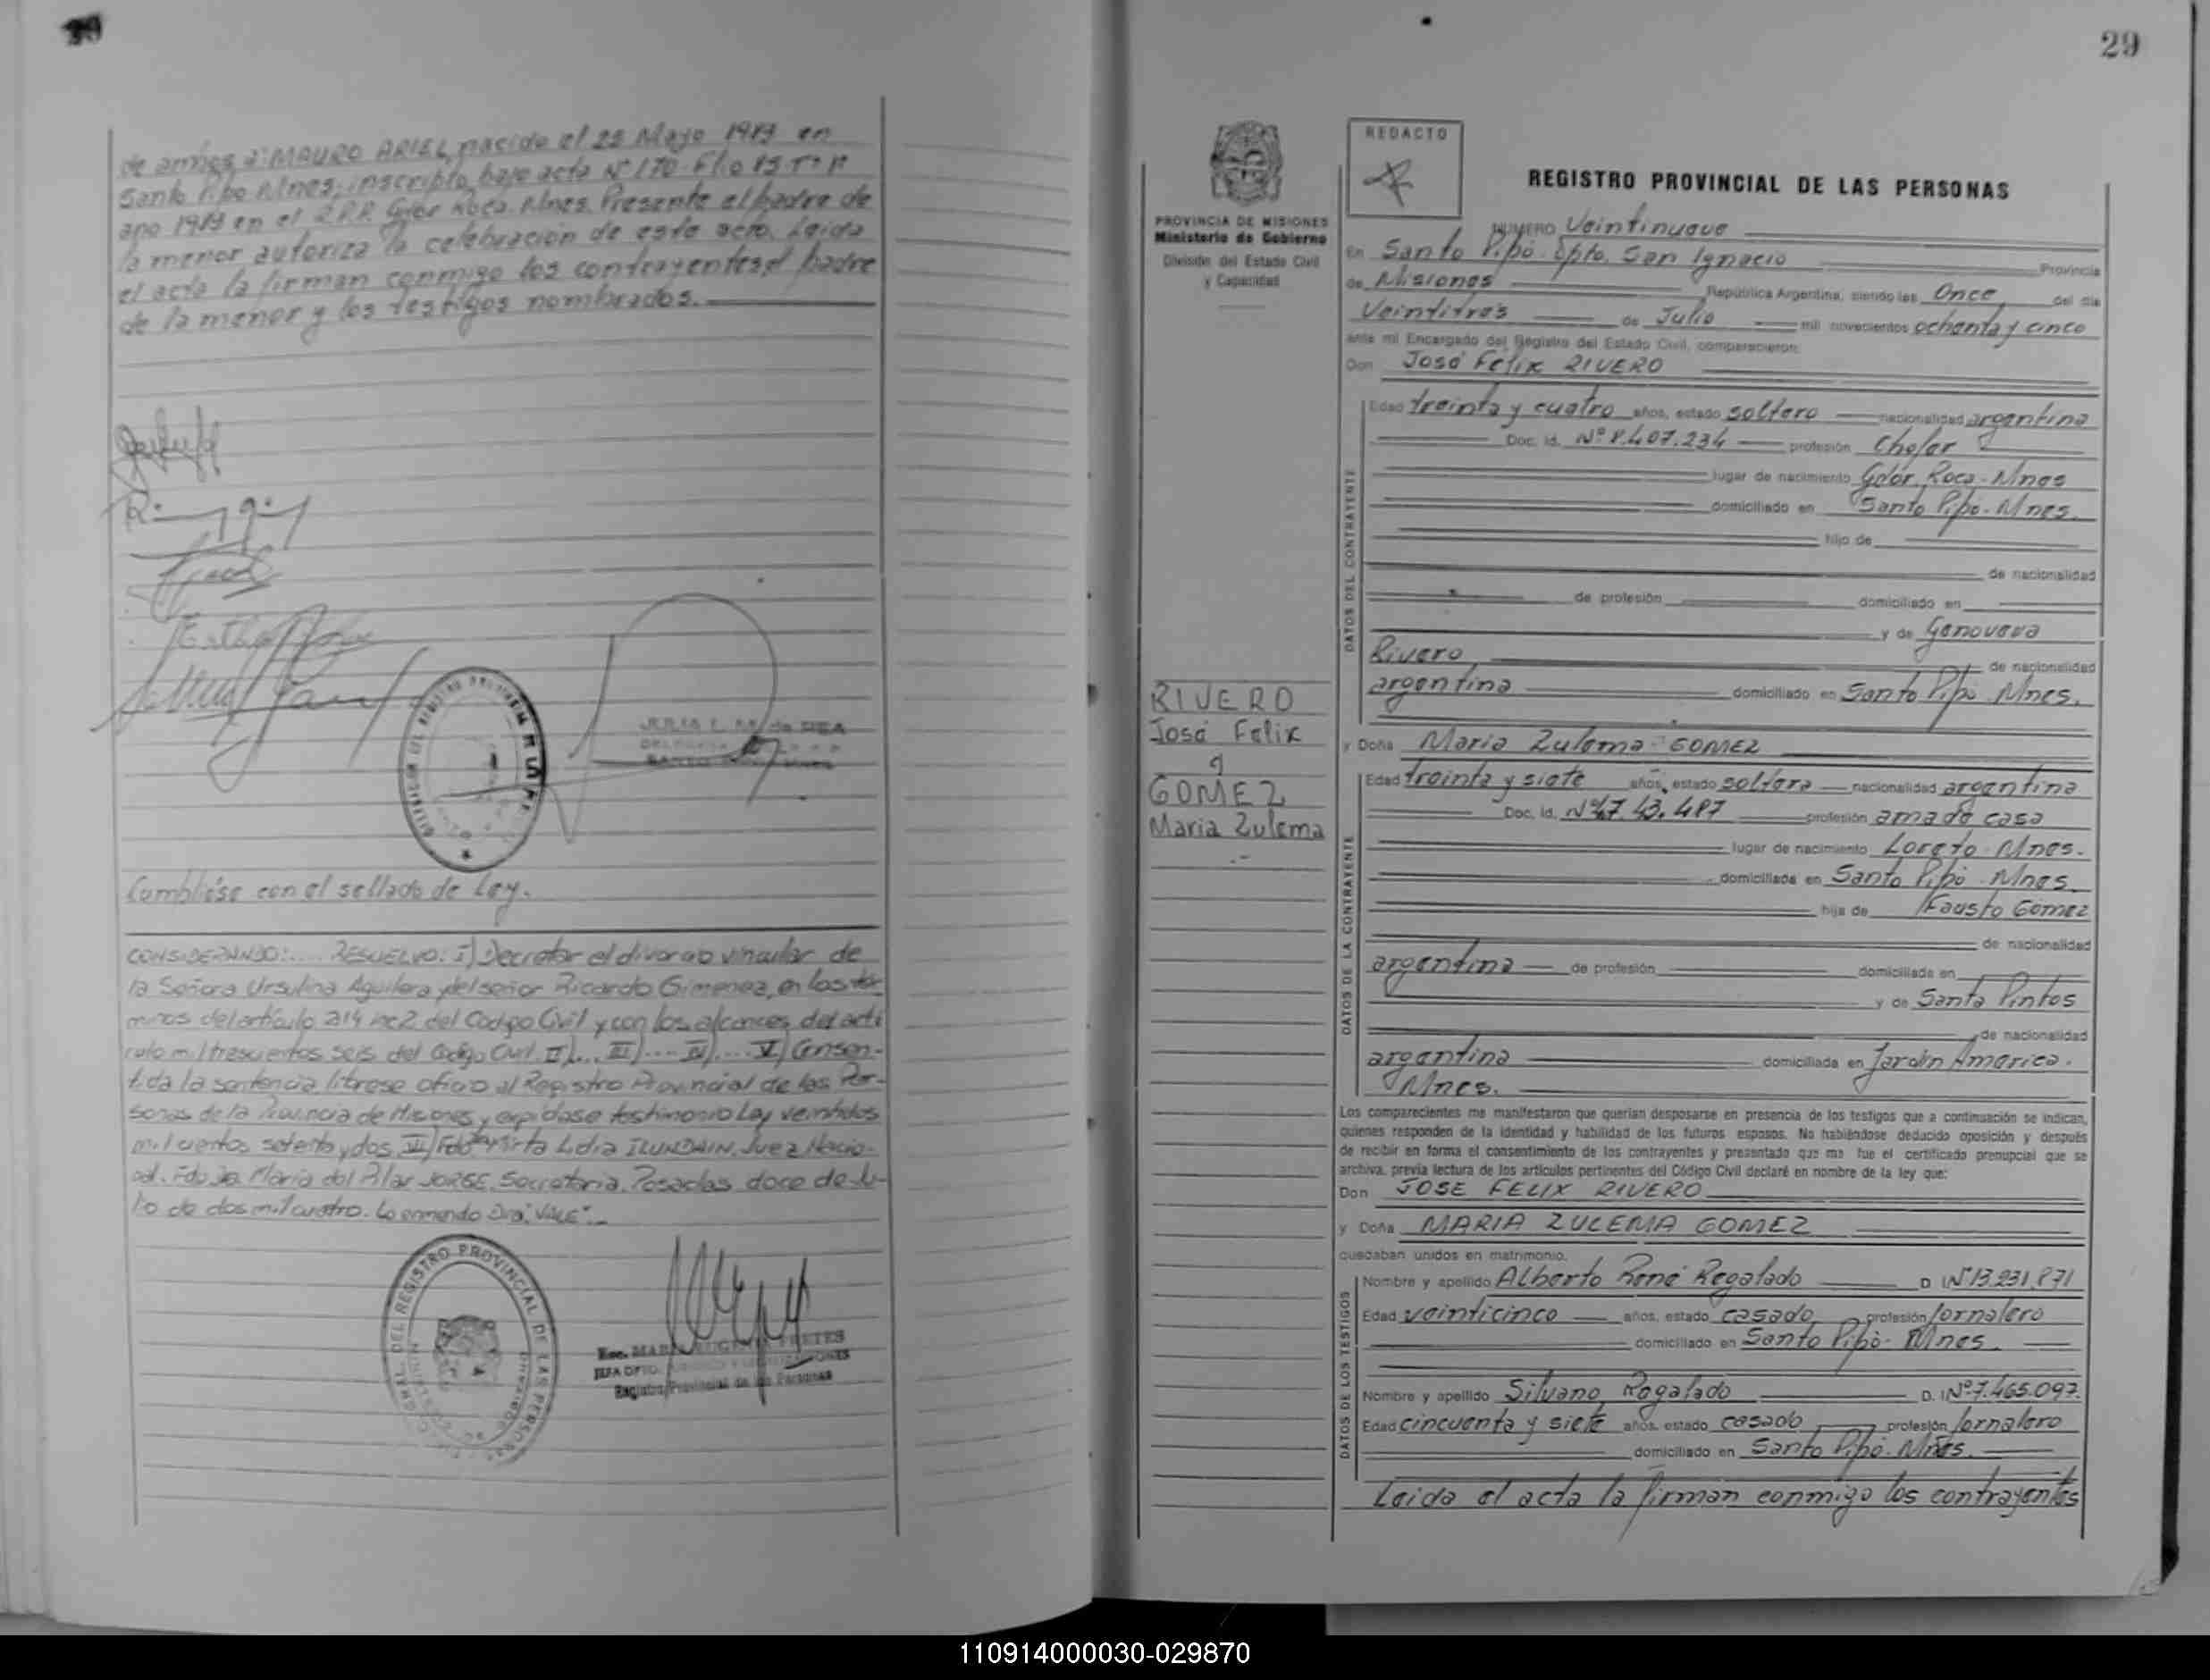 de ambos a: MAURO ARIEL, nacido el 25 Mayo 1983 en
Santo Pipo Mnes, inscripto bajo acta Nº 170 Flo 85 Tº
año 1983 en el R.P.P. Gdor Roca. Mnes. Presente el padre de
la menor autoriza la celebración de este acto. Leida
el acta la firman conmigo los contrayentes el padre
de la menor y los testigos nombrados.
JULIA L. de REA
Cumpliése con el sellado de Ley.
CONSIDERANDO:.... RESUELVO: I) Decretar el divorcio vincular de
la Señora Ursulina Aguilera y del señor Ricardo Gimenez, en los tér-
minos del artículo 214 inc 2 del Codigo Civil y con los alcances del arti
culo mil trescientos seis del Codigo Civil. II).... III).... IV).... V) Consen-
tida la sentencia líbrese oficio al Registro Provincial de las Per-
sonas de la Provincia de Misiones y expidase testimonio Ley veintidos
mil cientos setenta y dos. VI) Fdo Mirta Lidia ILUNDAIN. Juez
Fdo Maria del Pilar JORGE. Secretaria. Posadas doce de Ju-
lio de dos mil cuatro. Lo enmendo Dra: "VALE".-
REGISTRO PROVINCIAL DE LAS PERSONAS
Registro Provincial de las Personas
29
PROVINCIA DE MISIONES
Ministerio de Gobierno
División del Estado Civil
y Capacidad
REDACTO
REGISTRO PROVINCIAL DE LAS PERSONAS
NUMERO Veintinueve
En Santo Pipó. Dpto. San Ignacio Provincia
de Misiones República Argentina, siendo las Once del día
Veintitrés de Julio mil novecientos ochenta y cinco
ante mi Encargado del Registro del Estado Civil, comparecieron:
Don José Felix RIVERO
DATOS DEL CONTRAYENTE
Edad treinta y cuatro años, estado soltero nacionalidad argentina
Doc. Id. Nº 8.407.234 profesión Chofer
lugar de nacimiento Gdor. Roca - Mnes
domiciliado en Santo Pipo - Mnes.
hijo de
de nacionalidad
de profesión domiciliado en
y de Genoveva
Rivero de nacionalidad
argentina domiciliado en Santo Pipo. Mnes.
RIVERO
José Felix
y
GOMEZ
Maria Zulema
y Doña Maria Zulema GOMEZ
DATOS DE LA CONTRAYENTE
Edad treinta y siete años, estado soltera nacionalidad argentina
Doc. Id. profesión ama de casa
lugar de nacimiento Loreto - Mnes.
domiciliada en Santo Pipó - Mnes.
hija de Fausto Gomez
de nacionalidad
argentina de profesión domiciliado en
y de Santa Pintos
de nacionalidad
argentina domiciliada en Jardin America.
Mnes.
Los comparecientes me manifestaron que querían desposarse en presencia de los testigos que a continuación se indican,
quienes responden de la identidad y habilidad de los futuros esposos. No habiéndose deducido oposición y después
de recibir en forma el consentimiento de los contrayentes y presentado que me fue el certificado prenupcial que se
archiva, previa lectura de los artículos pertinentes del Código Civil declaré en nombre de la ley que:
Don JOSE FELIX RIVERO
y Doña MARIA ZULEMA GOMEZ
quedaban unidos en matrimonio.
DATOS DE LOS TESTIGOS
Nombre y apellido Alberto René Regalado D Nº 13.231.871
Edad veinticinco años, estado casado profesión Jornalero
domiciliado en Santo Pipò - Mnes.
Nombre y apellido Silvano Regalado D. I Nº 7.465.097.
Edad cincuenta y siete años, estado casado profesión Jornalero
domiciliado en Santo Pipó - Mnes.
Leida el acta la firman conmigo los contrayentes
110914000030-029870